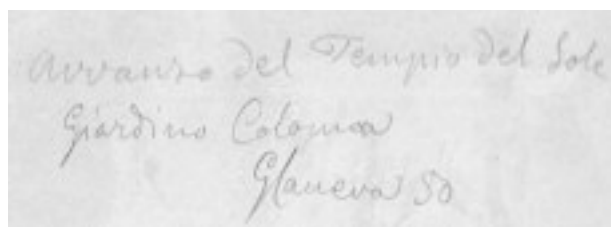 Avvanzo del Tempio del Sole
Giardino Colonna